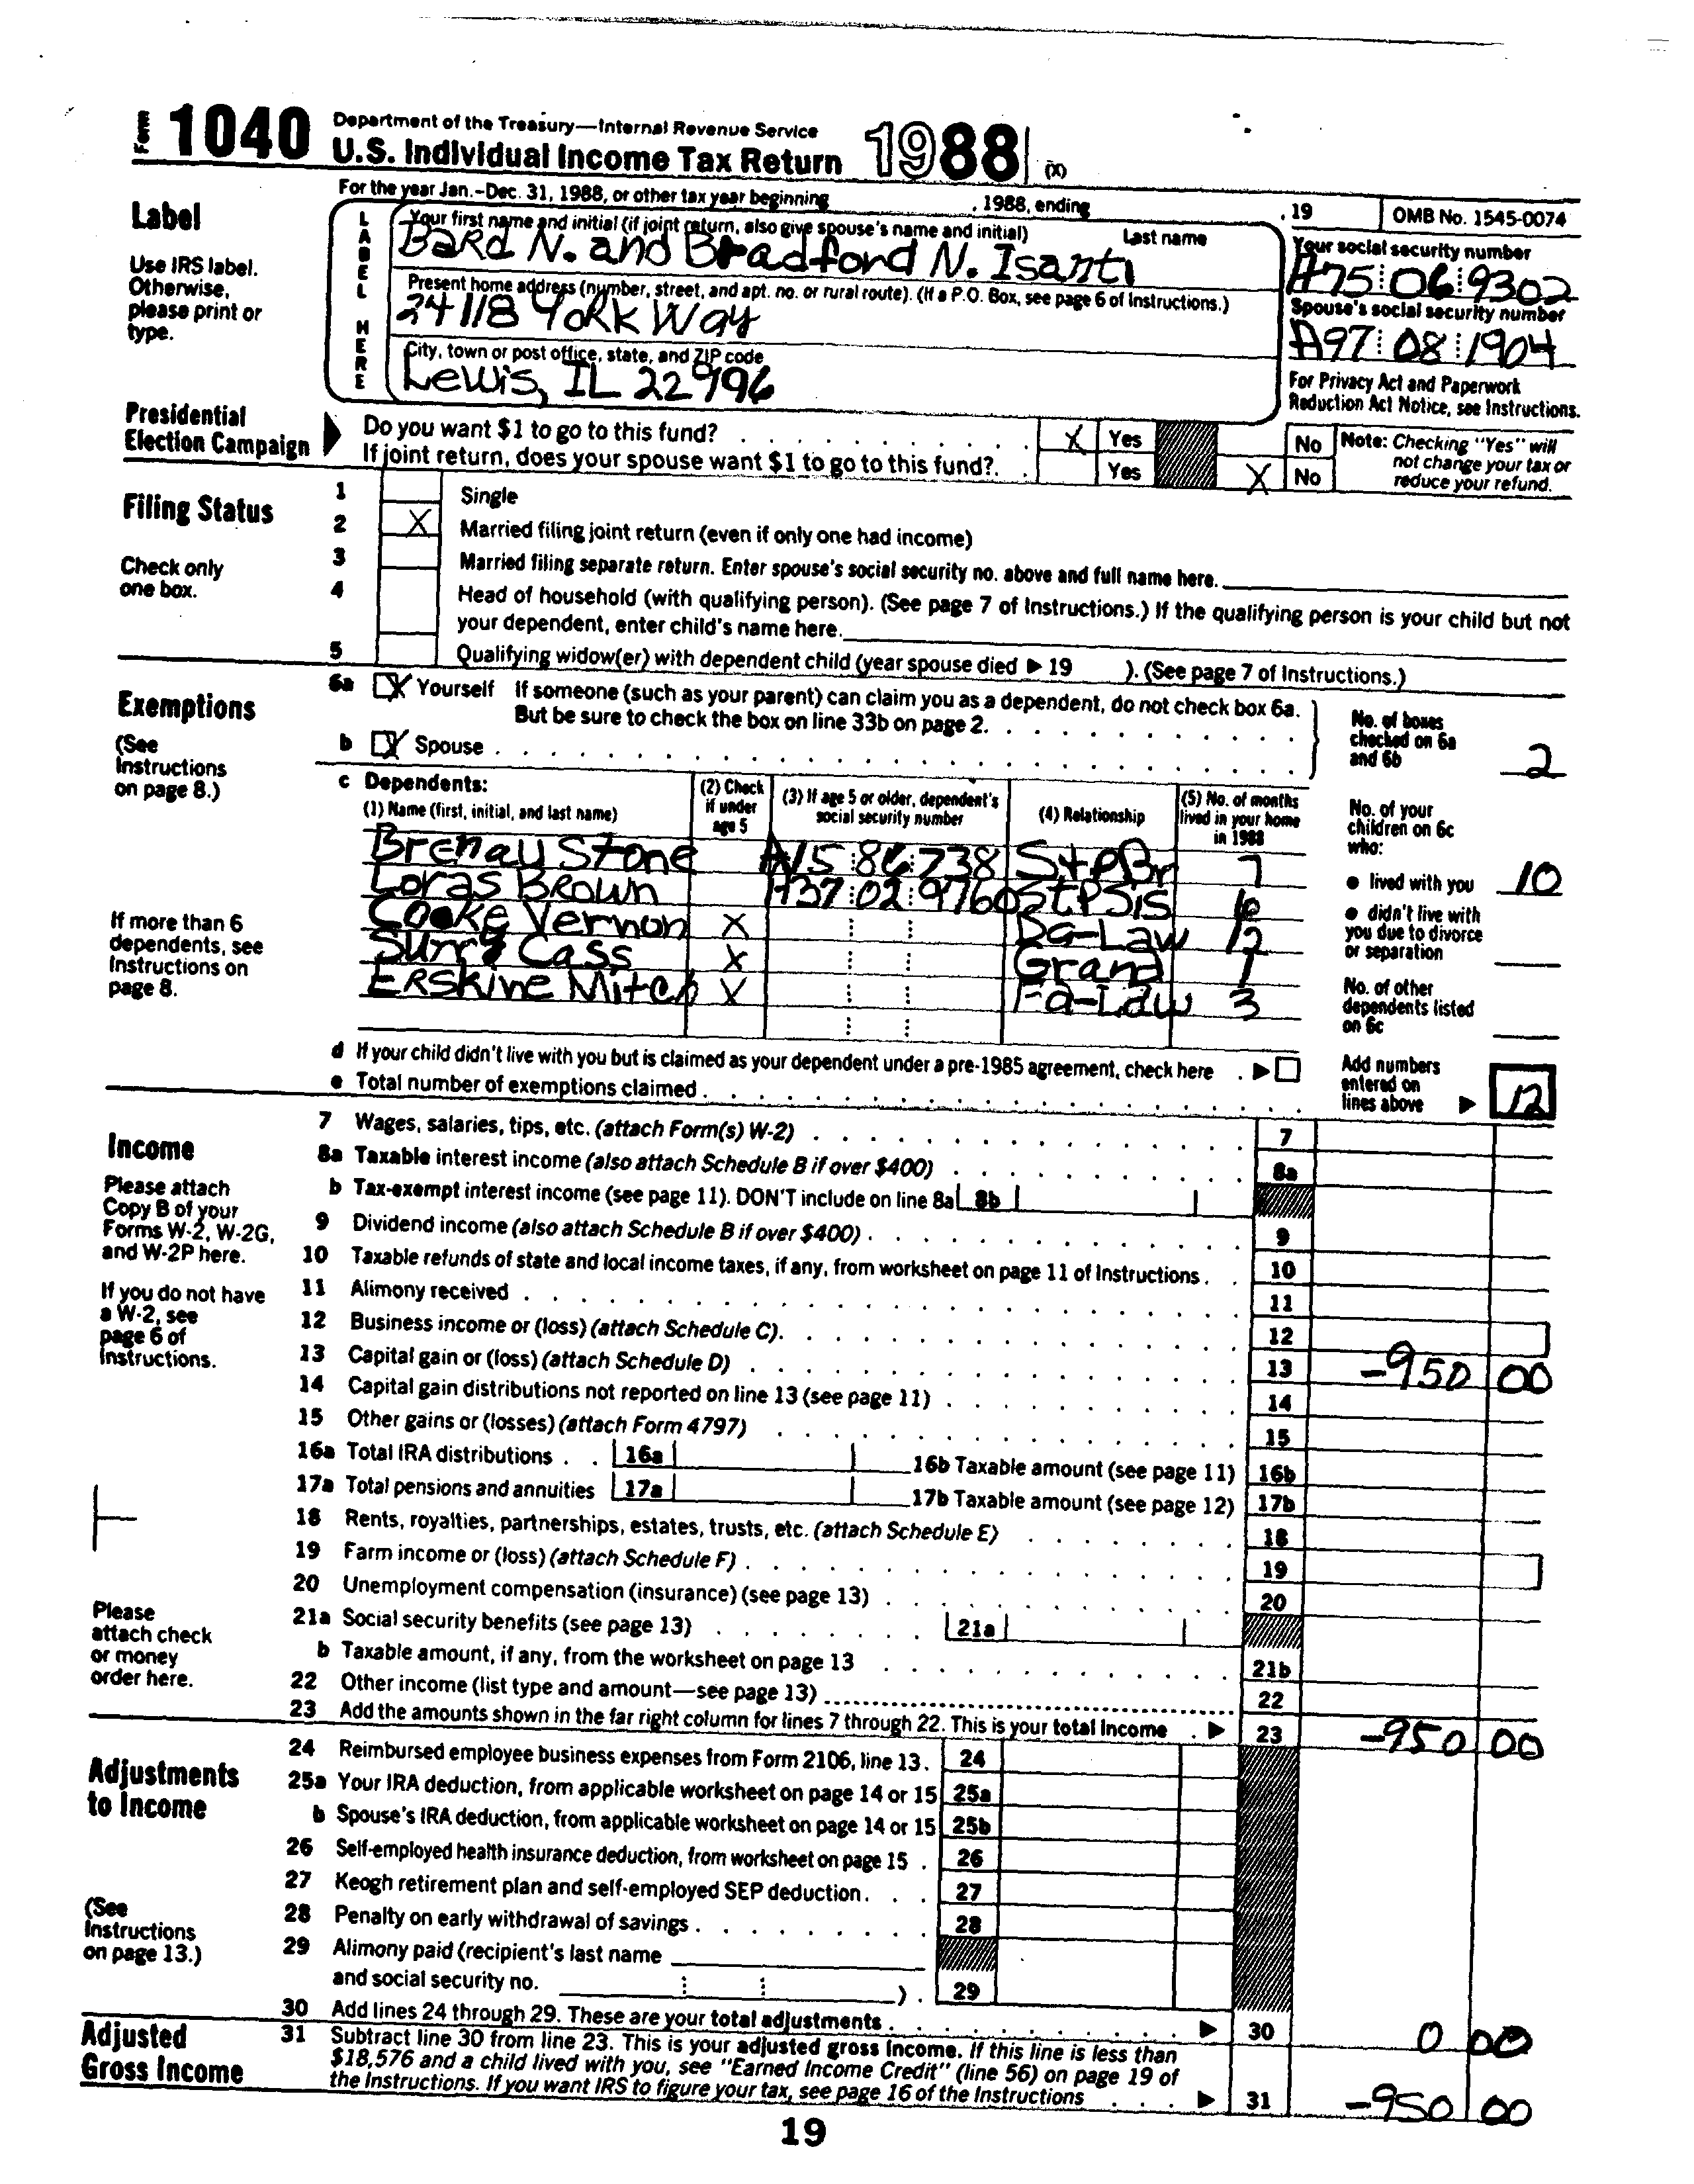 Form 1040 Department of the Treasury—Internal Revenue Service
U.S. Individual Income Tax Return 1988 (X)
For the year Jan.-Dec. 31, 1988, or other tax year beginning , 1988, ending , 19 OMB No. 1545-0074
Label
Use IRS label.
Otherwise,
please print or
type.
LABEL HERE
Your first name and initial (if joint return, also give spouse's name and initial) Last name
Bard N. and Bradford N. Isanti
Your social security number
A75 06 9302
Present home address (number, street, and apt. no. or rural route). (If a P.O. Box, see page 6 of Instructions.)
24118 York Way
Spouse's social security number
A97 08 1904
City, town or post office, state, and ZIP code
Lewis, IL 22996
For Privacy Act and Paperwork
Reduction Act Notice, see Instructions.
Presidential
Election Campaign
Do you want $1 to go to this fund? X Yes No
If joint return, does your spouse want $1 to go to this fund? Yes X No
Note: Checking "Yes" will
not change your tax or
reduce your refund.
Filing Status
Check only
one box.
1 Single
2 X Married filing joint return (even if only one had income)
3 Married filing separate return. Enter spouse's social security no. above and full name here.
4 Head of household (with qualifying person). (See page 7 of Instructions.) If the qualifying person is your child but not
your dependent, enter child's name here.
5 Qualifying widow(er) with dependent child (year spouse died ▶ 19 ). (See page 7 of Instructions.)
Exemptions
(See
Instructions
on page 8.)
6a X Yourself If someone (such as your parent) can claim you as a dependent, do not check box 6a.
But be sure to check the box on line 33b on page 2.
b X Spouse
No. of boxes
checked on 6a
and 6b 2
c Dependents:
(1) Name (first, initial, and last name)
(2) Check
if under
age 5
(3) If age 5 or older, dependent's
social security number
(4) Relationship
(5) No. of months
lived in your home
in 1988
Brenau Stone A15 86 738 StpBr 7
Loras Brown A37 02 9760 StPSis 10
Cooke Vernon X Da-Law 12
Surry Cass X Grand 1
Erskine Mitch X Fa-Law 3
If more than 6
dependents, see
Instructions on
page 8.
No. of your
children on 6c
who:
● lived with you 10
● didn't live with
you due to divorce
or separation
No. of other
dependents listed
on 6c
d If your child didn't live with you but is claimed as your dependent under a pre-1985 agreement, check here ▶
e Total number of exemptions claimed
Add numbers
entered on
lines above ▶ 12
Income
Please attach
Copy B of your
Forms W-2, W-2G,
and W-2P here.
If you do not have
a W-2, see
page 6 of
Instructions.
Please
attach check
or money
order here.
7 Wages, salaries, tips, etc. (attach Form(s) W-2) 7
8a Taxable interest income (also attach Schedule B if over $400) 8a
b Tax-exempt interest income (see page 11). DON'T include on line 8a 8b
9 Dividend income (also attach Schedule B if over $400) 9
10 Taxable refunds of state and local income taxes, if any, from worksheet on page 11 of Instructions 10
11 Alimony received 11
12 Business income or (loss) (attach Schedule C) 12
13 Capital gain or (loss) (attach Schedule D) 13 -950 00
14 Capital gain distributions not reported on line 13 (see page 11) 14
15 Other gains or (losses) (attach Form 4797) 15
16a Total IRA distributions 16a 16b Taxable amount (see page 11) 16b
17a Total pensions and annuities 17a 17b Taxable amount (see page 12) 17b
18 Rents, royalties, partnerships, estates, trusts, etc. (attach Schedule E) 18
19 Farm income or (loss) (attach Schedule F) 19
20 Unemployment compensation (insurance) (see page 13) 20
21a Social security benefits (see page 13) 21a
b Taxable amount, if any, from the worksheet on page 13 21b
22 Other income (list type and amount—see page 13) 22
23 Add the amounts shown in the far right column for lines 7 through 22. This is your total income ▶ 23 -950 00
Adjustments
to Income
(See
Instructions
on page 13.)
24 Reimbursed employee business expenses from Form 2106, line 13. 24
25a Your IRA deduction, from applicable worksheet on page 14 or 15 25a
b Spouse's IRA deduction, from applicable worksheet on page 14 or 15 25b
26 Self-employed health insurance deduction, from worksheet on page 15 26
27 Keogh retirement plan and self-employed SEP deduction 27
28 Penalty on early withdrawal of savings 28
29 Alimony paid (recipient's last name
and social security no. ) 29
30 Add lines 24 through 29. These are your total adjustments ▶ 30 0 00
Adjusted
Gross Income
31 Subtract line 30 from line 23. This is your adjusted gross income. If this line is less than
$18,576 and a child lived with you, see "Earned Income Credit" (line 56) on page 19 of
the Instructions. If you want IRS to figure your tax, see page 16 of the Instructions ▶ 31 -950 00
19